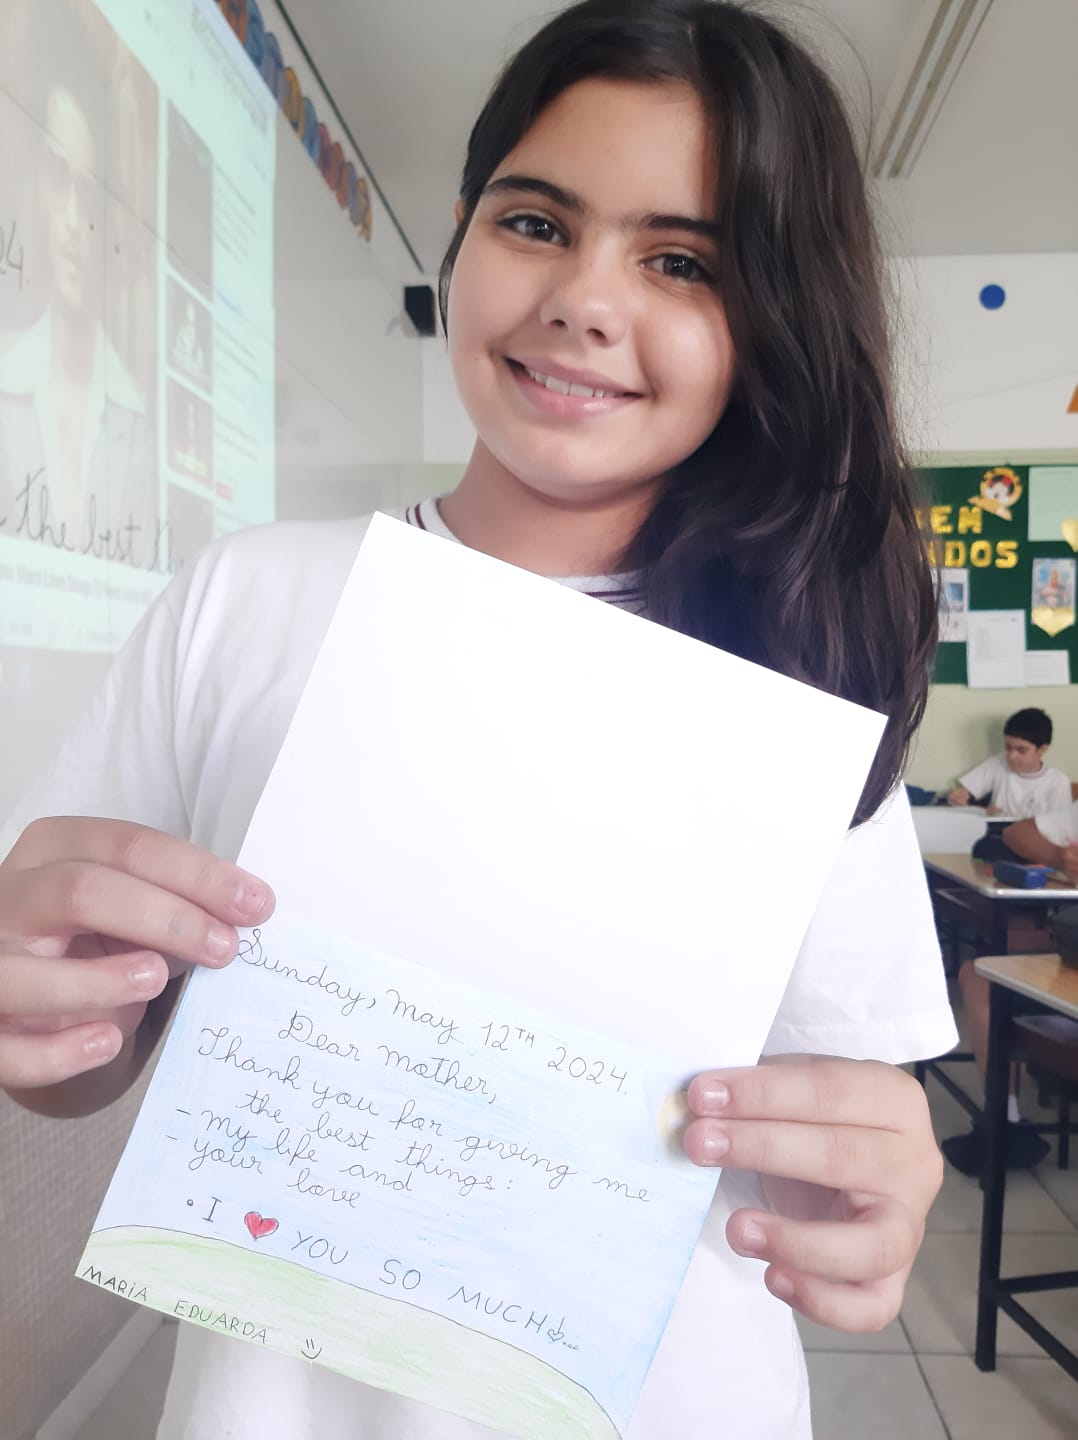 24.
the best th
EM
ADOS
Sunday, may 12TH 2024.
Dear mother,
Thank you for giving me
the best things:
- my life and
- your love
• I ❤ YOU SO MUCH!...
MARIA EDUARDA